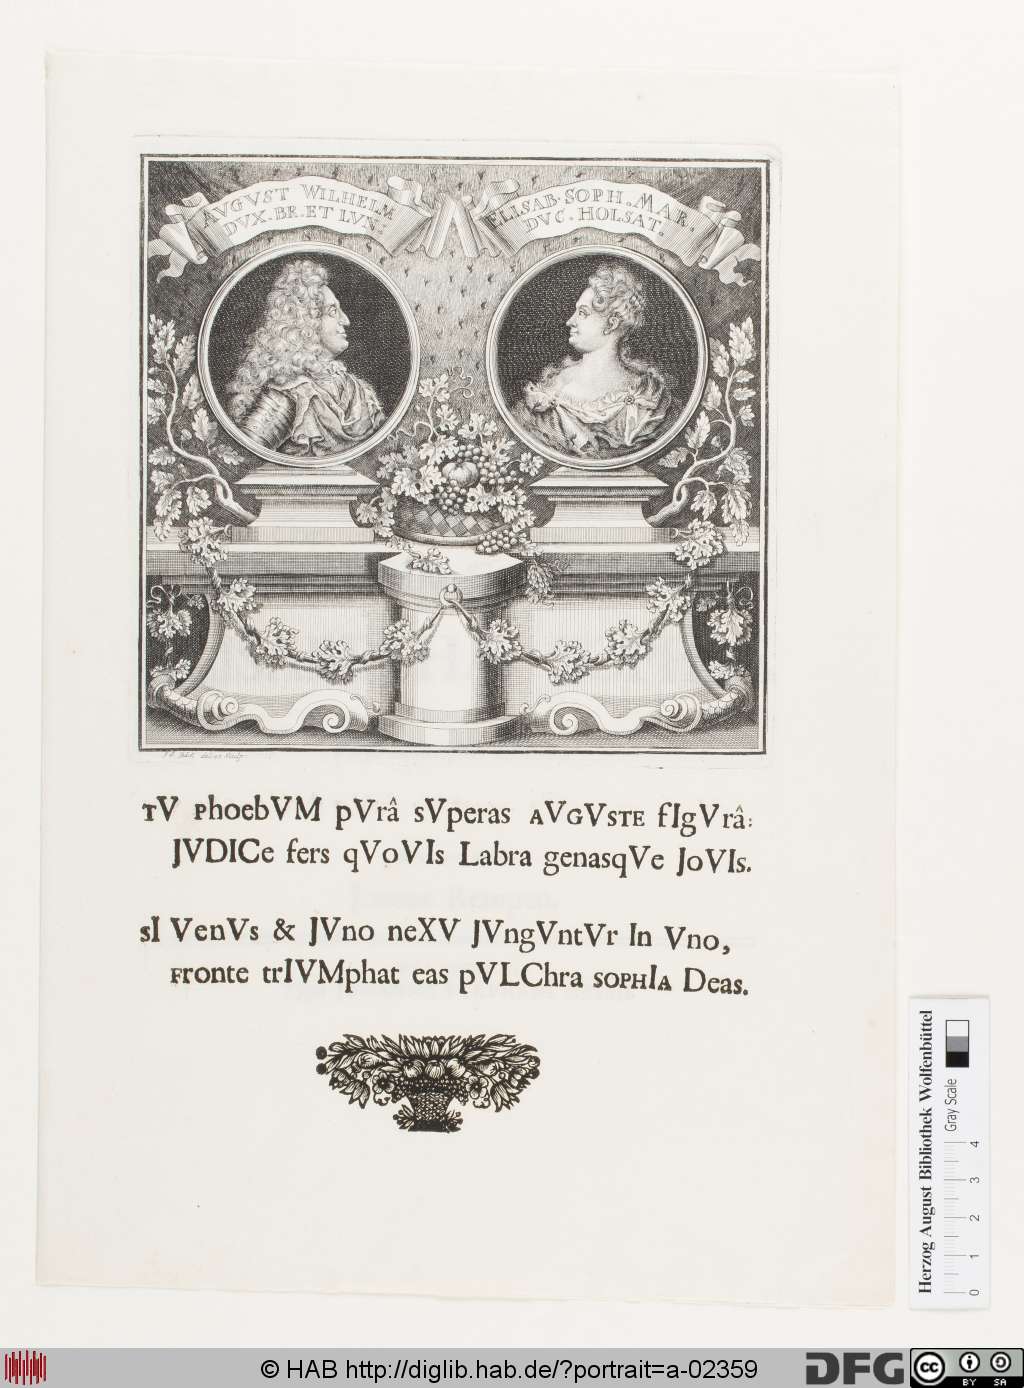 AVGVST WILHELM
DVX. BR. ET LVN:
ELISAB. SOPH. MAR.
DVC. HOLSAT.
TV PhoebVM pVrâ sVperas AVGVSTE fIgVrâ:
JVDICe fers qVoVIs Labra genasqVe JoVIs.
sI VenVs & JVno neXV JVngVntVr In Vno,
Fronte trIVMphat eas pVLChra SOPHIA Deas.
Herzog August Bibliothek Wolfenbüttel
Gray Scale
0 1 2 3 4
© HAB http://diglib.hab.de/?portrait=a-02359
DFG
cc
BY SA